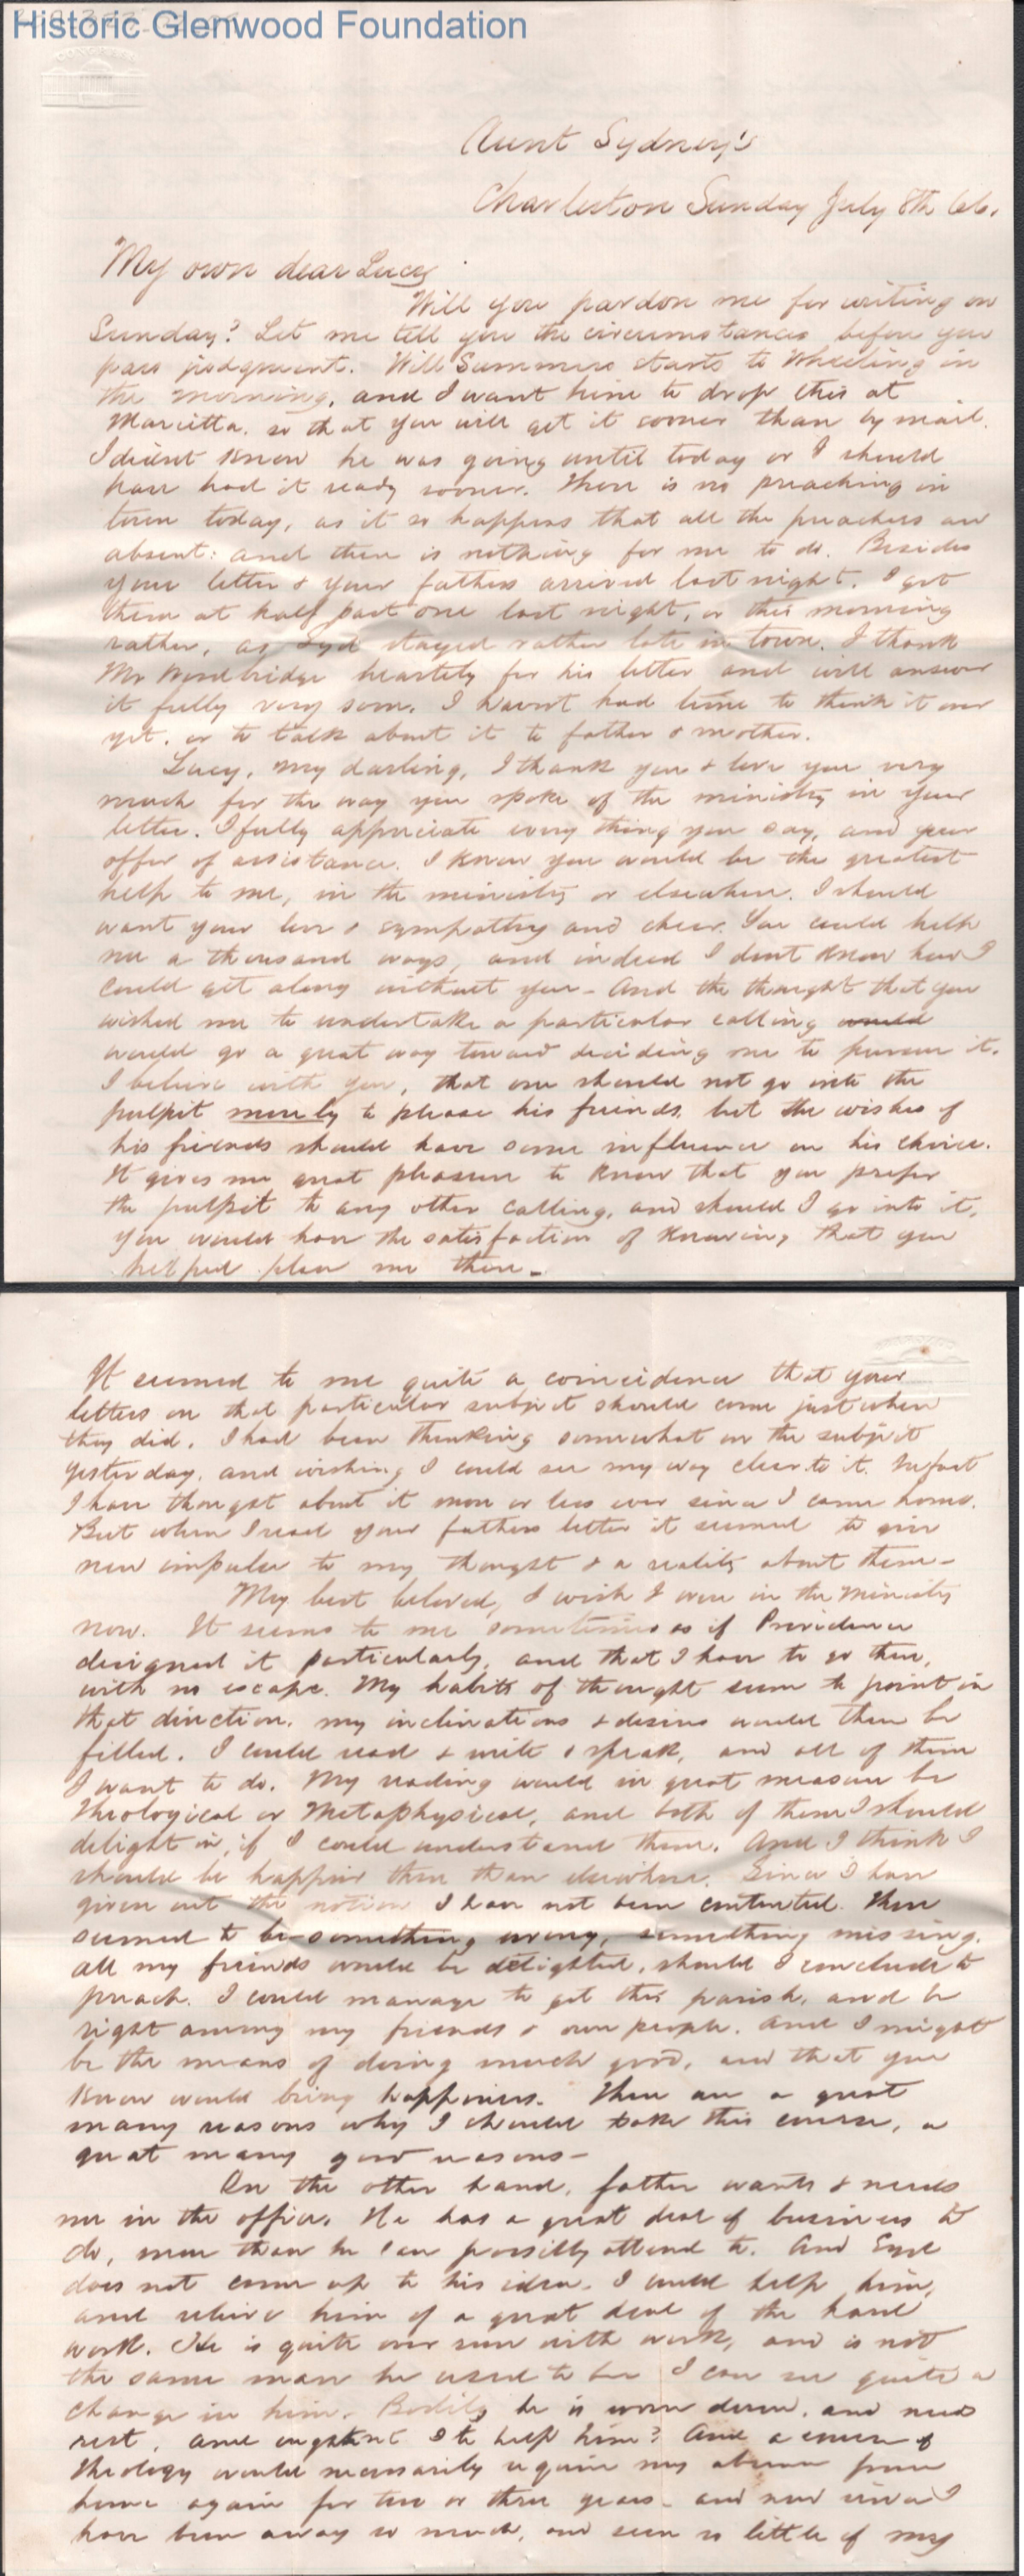 Historic Glenwood Foundation
Aunt Sydney's
Charleston Sunday July 8th 66.
My own dear Lucy
Will you pardon me for writing on
Sunday? Let me tell you the circumstances before you
pass judgment. Will Summers starts to Wheeling in
the morning, and I want him to drop this at
Marietta, so that you will get it sooner than by mail.
I didnt know he was going until today or I should
have had it ready sooner. There is no preaching in
town today, as it so happens that all the preachers are
absent: and there is nothing for me to do. Besides
your letter & your fathers arrived last night. I got
them at half past one last night, or this morning
rather, as Syd stayed rather late in town. I thank
Mr Woodbridge heartily for his letter and will answer
it fully very soon. I havn't had time to think it over
yet, or to talk about it to father & mother.
Lucy, my darling, I thank you & love you very
much for the way you spoke of the ministry in your
letter. I fully appreciate every thing you say, and your
offer of assistance. I know you would be the greatest
help to me, in the ministry or elsewhere. I should
want your love & sympathy and cheer. You could help
me a thousand ways, and indeed I dont know how I
could get along without you - And the thought that you
wished me to undertake a particular calling would
would go a great way toward deciding me to pursue it.
I believe with you, that one should not go into the
pulpit merely to please his friends, but the wishes of
his friends should have some influence on his choice.
It gives me great pleasure to know that you prefer
the pulpit to any other calling, and should I go into it,
you would have the satisfaction of knowing that you
helped place me there -
It seemed to me quite a coincidence that your
letters on that particular subject should come just when
they did. I had been thinking somewhat on the subject
yesterday, and wishing I could see my way clear to it. In fact
I have thought about it more or less ever since I came home.
But when I read your fathers letter it seemed to give
new impulse to my thought & a reality about them -
My best beloved, I wish I were in the ministry
now. It seems to me sometimes as if Providence
designed it particularly, and that I have to go there,
with no escape. My habits of thought seem to point in
that direction, my inclinations & desires would then be
filled. I could read & write & speak, and all of them
I want to do. My reading would in great measure be
Theological or Metaphysical, and both of them I should
delight in, if I could understand them. And I think I
should be happier there than elsewhere. Since I have
given out the notion I have not been contented. There
seemed to be something wrong, something missing.
All my friends would be delighted, should I conclude to
preach. I could manage to get this parish, and be
right among my friends & own people. And I might
be the means of doing much good, and that you
know would bring happiness. There are a great
many reasons why I should take this course, a
great many good reasons -
On the other hand, father wants & needs
me in the office. He has a great deal of business to
do, more than he can possibly attend to. And
does not come up to his idea. I could help him,
and relieve him of a great deal of the hard
work. He is quite over run with work, and is not
the same man he used to be I can see quite a
change in him. Bodily he is worn down, and needs
rest, and oughtent I to help him? And a course of
theology would necessarily require my absence from
home again for two or three years - and now since I
have been away so much, and seen so little of my